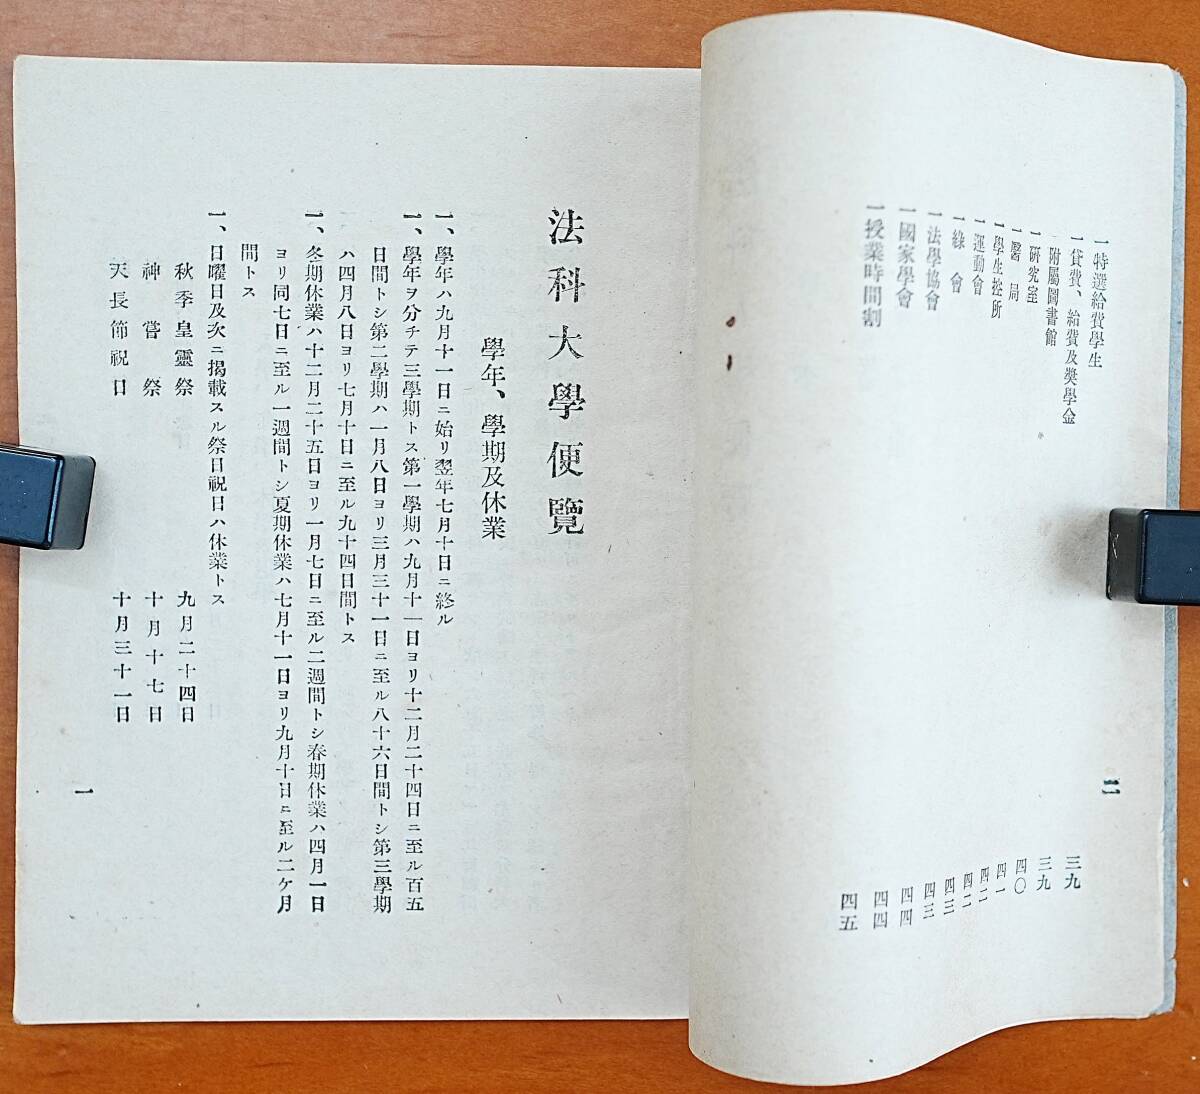 一特選給費學生 三九
一貸費、給費及奬學金 三九
一附屬圖書館 四〇
一研究室 四一
一醫局 四二
一學生控所 四二
一運動會 四三
一綠會 四三
一法學協會 四四
一國家學會 四四
一授業時間割 四五
二
法科大學便覽
學年、學期及休業
一、學年ハ九月十一日ニ始リ翌年七月十日ニ終ル
一、學年ヲ分チテ三學期トス第一學期ハ九月十一日ヨリ十二月二十四日ニ至ル百五
日間トシ第二學期ハ一月八日ヨリ三月三十一日ニ至ル八十六日間トシ第三學期
ハ四月八日ヨリ七月十日ニ至ル九十四日間トス
一、冬期休業ハ十二月二十五日ヨリ一月七日ニ至ル二週間トシ春期休業ハ四月一日
ヨリ同七日ニ至ル一週間トシ夏期休業ハ七月十一日ヨリ九月十日ニ至ル二ケ月
間トス
一、日曜日及次ニ揭載スル祭日祝日ハ休業トス
秋季皇靈祭 九月二十四日
神嘗祭 十月十七日
天長節祝日 十月三十一日
一